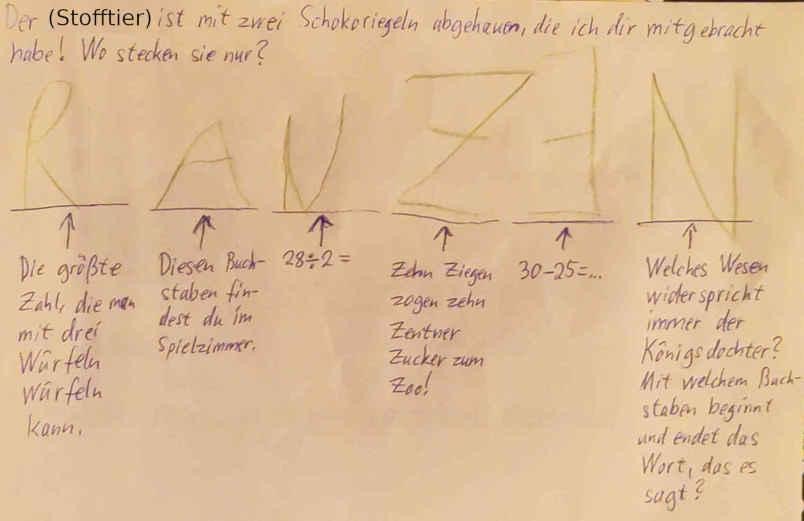 Der (Stofftier) ist mit zwei Schokoriegeln abgehauen, die ich dir mitgebracht
habe! Wo stecken sie nur?
R A N Z E N
Die größte
Zahl, die man
mit drei
Würfeln
würfeln
kann.
Diesen Buch-
staben fin-
dest du im
Spielzimmer.
28÷2=
Zehn Ziegen
zogen zehn
Zentner
Zucker zum
Zoo!
30-25=...
Welches Wesen
widerspricht
immer der
Königsdochter?
Mit welchem Buch-
staben beginnt
und endet das
Wort, das es
sagt?